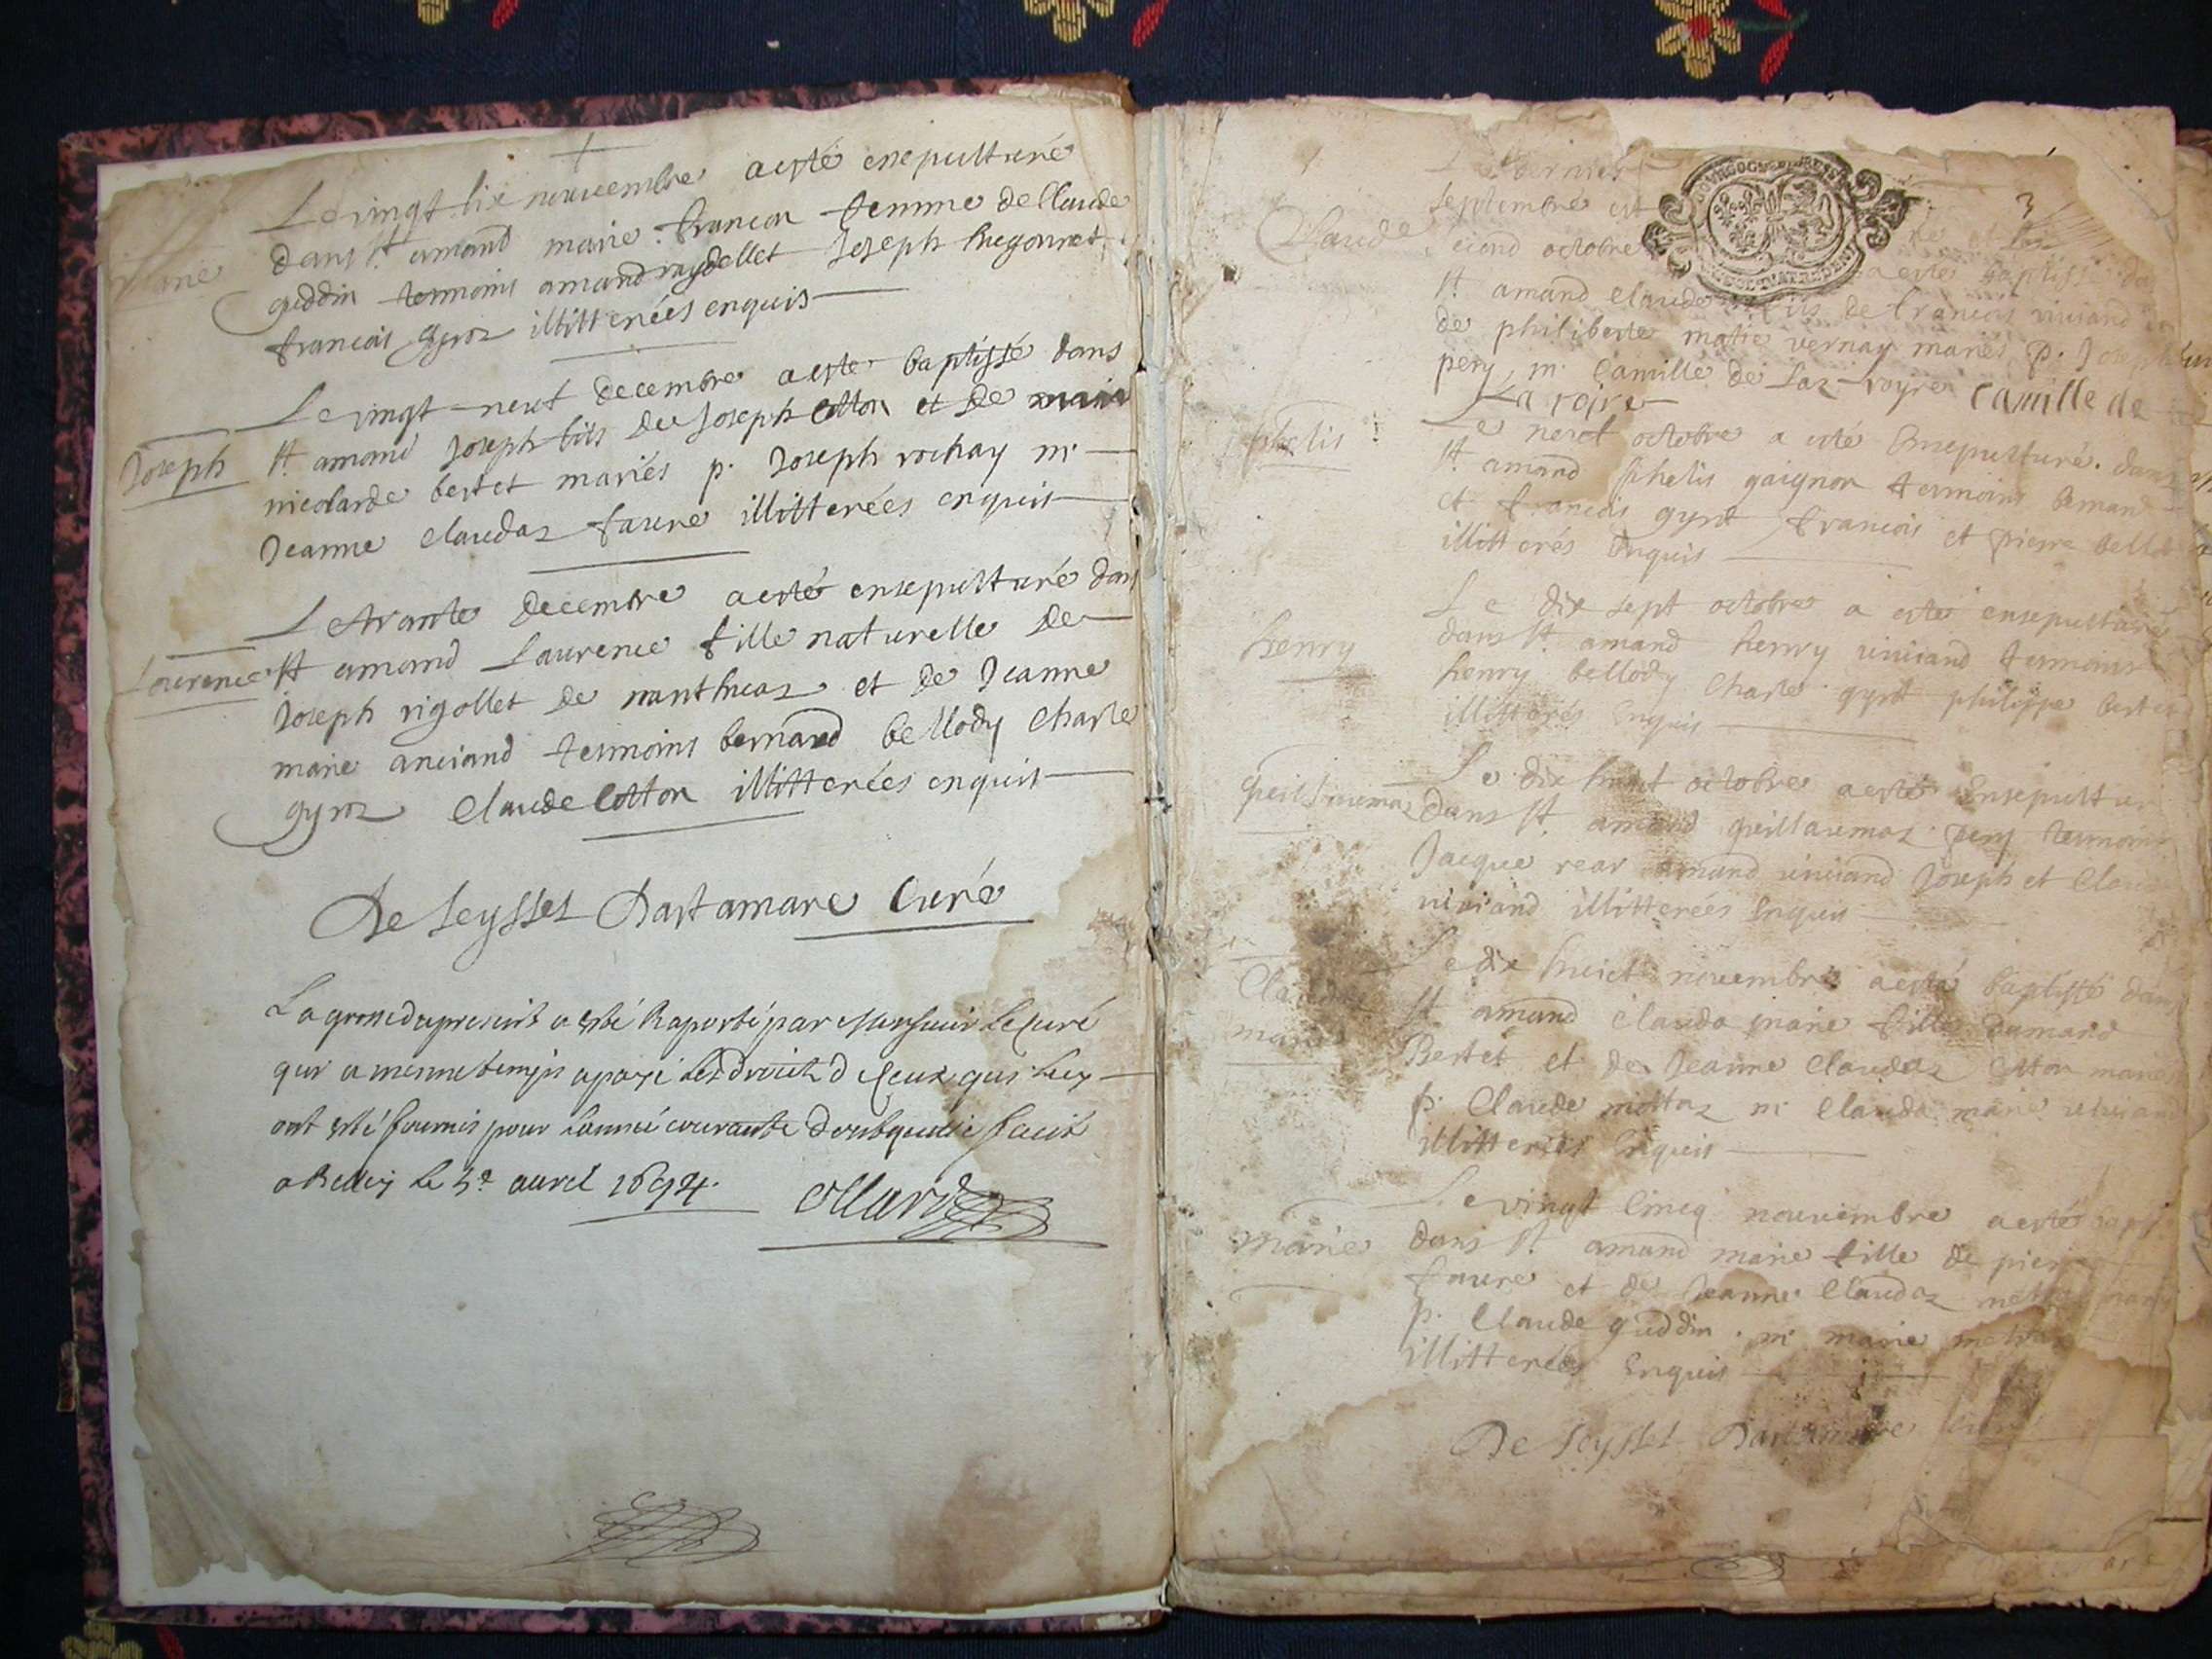 Le vingt six nouvembre a esté ensepulturé
dans st. amand marie francon femme de Claude
guddin termoins amand raydellet Joseph hugonnet
francois gyroz illitterées enquis
Joseph
Le vingt-neuf decembre a esté baptissé dans
st. amand Joseph fils de Joseph cotton et de marie
nicolarde bertet mariés p. Joseph rochay m.
Jeanne claudaz faure illitterées enquis
Laurence
Le trante decembre a esté ensepulturé dans
st amand Laurence fille naturelle de
Joseph rigollet de nanthuaz et de Jeanne
marie anciand termoins bernard bellody Charle
gyroz Claude Cotton illitterées enquis
De Seyssel Dartamare Curé
La grosse du present a esté Raporté par Monsieur Le curé
qui a mesme temps a payé les droict de ceux qui luy
ont esté fournis pour l'année courante dont quitte faict
a Belley le 3e avril 1694.
3
Le dernier
septembre est
Claude
second octobre
a estes baptissé
st. amand Claude fils de francois viviand
de philiberte matie vernay mariés p. Joseph
pery, m. Camille de Laz-royre Camille de
La roire
phelis
Le neuf octobre a esté Ensepulturé dans
st. amand phelis gaignon termoins
et francois gyrod francois et pierre bellod
illitterés Enquis
henry
Le dix sept octobre a esté ensepulturé
dans st. amand henry viviand termoins
henry bellody Charle gyrod philippe bertet
illitterés Enquis
guillaumaz
Le dix huict octobre a esté Ensepultur
dans st. amand guillaumaz pery termoins
Jacque rear amand viviand Joseph et Claude
viviand illitterées Enquis
Claudaz
marie
Le dix huict nouvembre a esté baptissé dans
st amand clauda marie fille damand
Bertet et de Jeanne Claudaz Cotton mariés
p. Claude mottaz m. Clauda marie viviand
illitterées Enquis
marie
Le vingt Cincq nouvembre a esté bapt
dans st. amand marie fille de pierre
faure et de Jeanne Claudaz
p. Claude guddin . m. marie
illitterées Enquis
De Seyssel Dartamare Curé